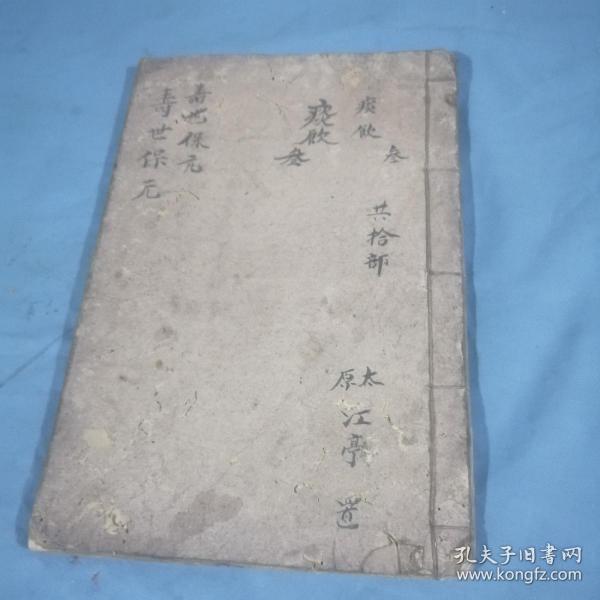 痰飲
叁
共拾部
太原
江亭 置
痰飲
叁
壽世保元
壽世保元
孔夫子旧书网
www.kongfz.com